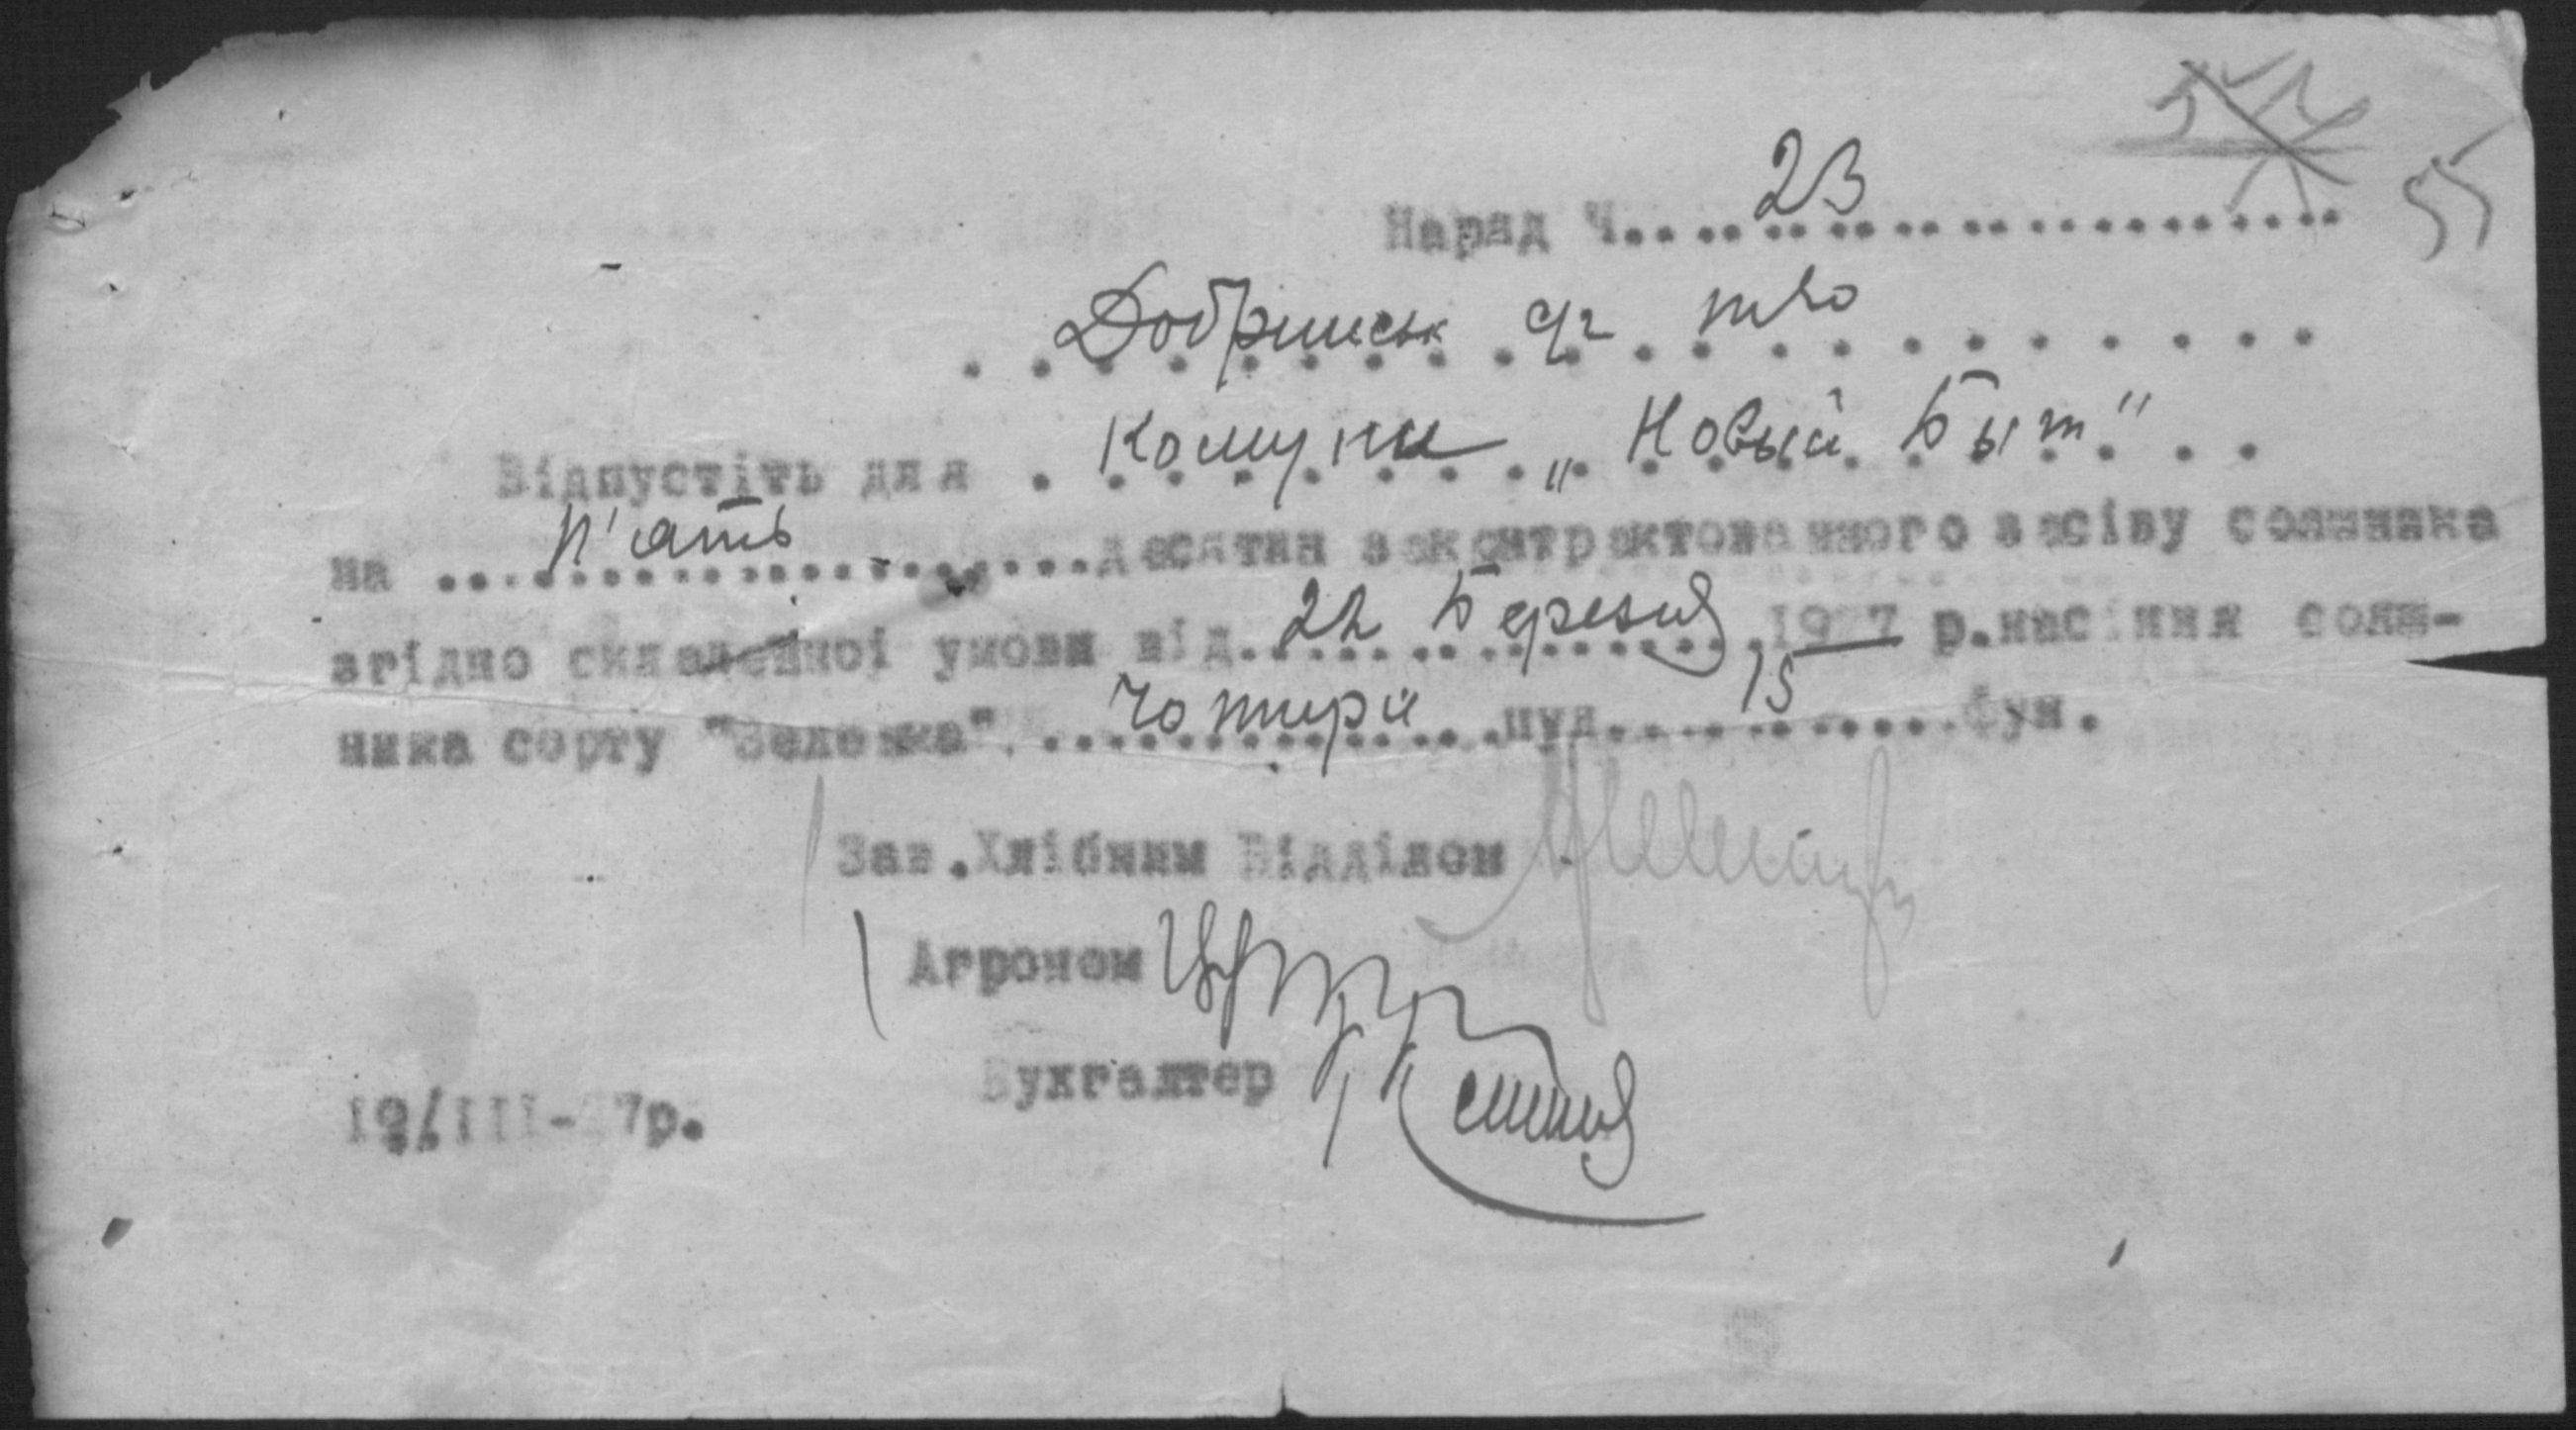 55
Наряд Ч. 23
Добринськ с/г т-во
Відпустіть для Комуни „Новый Быт"
на п'ять десятин законтрактованного засіву соняшника
згідно складенної умови від 22 Березня 1927 р. насіння соняш-
ника сорту "Зеленка" Чотири пуд. 15 фун.
Зав. Хлібним Відділом
Агроном
Бухгалтер
19/III-27р.